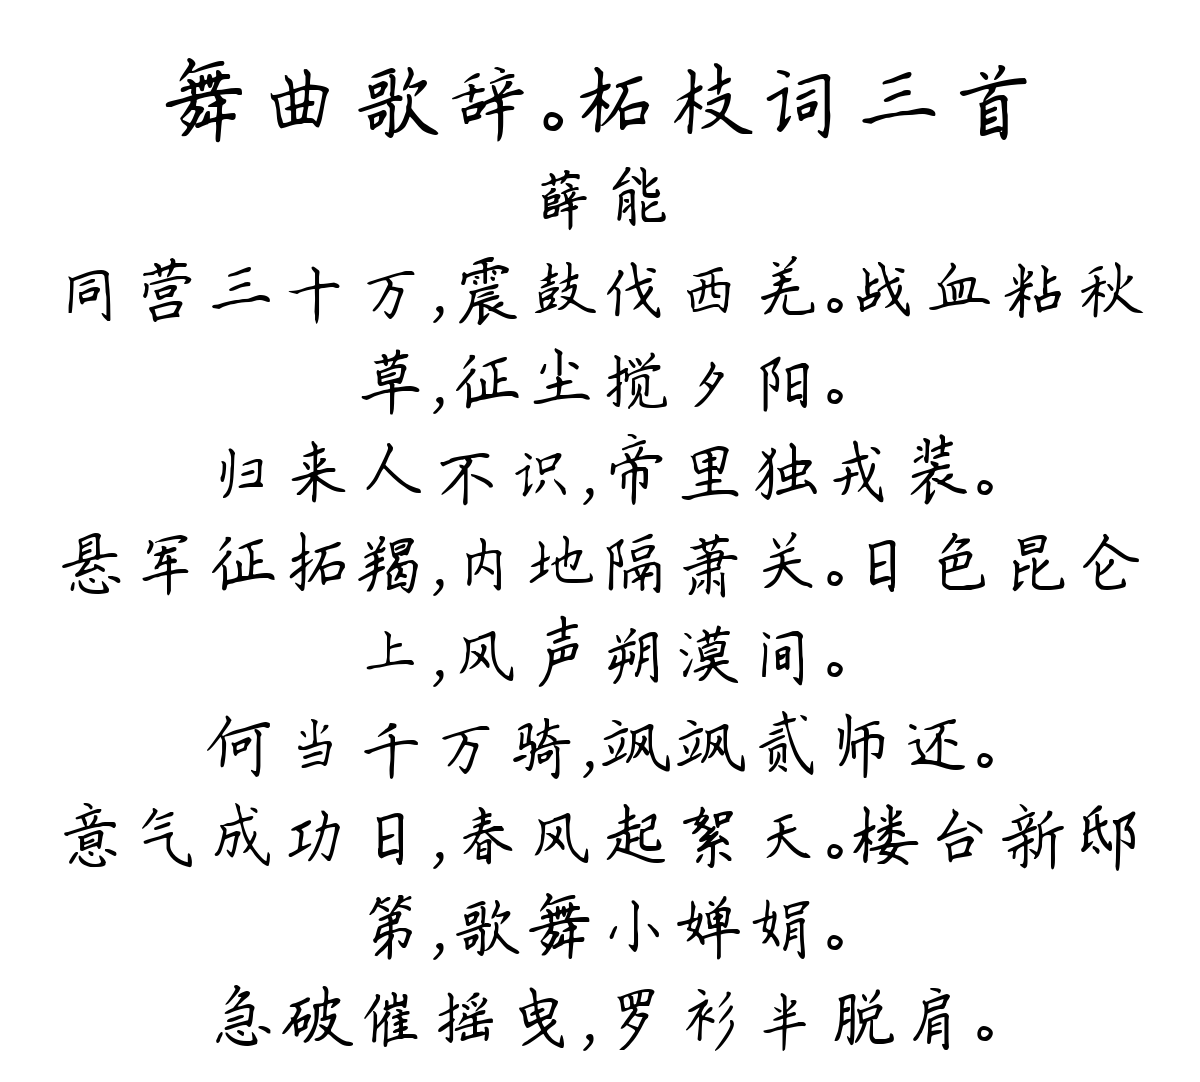 舞曲歌辞。柘枝词三首
薛能
同营三十万,震鼓伐西羌。战血粘秋
草,征尘搅夕阳。
归来人不识,帝里独戎装。
悬军征拓羯,内地隔萧关。日色昆仑
上,风声朔漠间。
何当千万骑,飒飒贰师还。
意气成功日,春风起絮天。楼台新邸
第,歌舞小婵娟。
急破催摇曳,罗衫半脱肩。